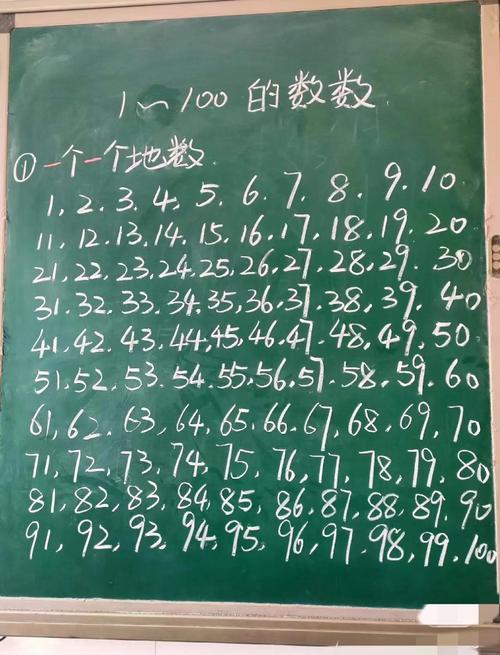 1~100的数数
①一个一个地数
1,2.3.4,5,6,7,8,9.10
11,12.13.14.15,16.17.18,19.20
21,22,23,24,25,26,27.28,29.30
31.32.33.34.35,36,37.38,39.40
41,42.43.44,45,46.47.48,49,50
51.52,53.54.55,56.57.58.59.60
61,62.63,64,65.66.67,68,69,70
71,72,73,74,75,76,77,78,79,80
81,82,83,84,85,86,87,88,89,90
91,92,93,94,95,96,97,98,99,100